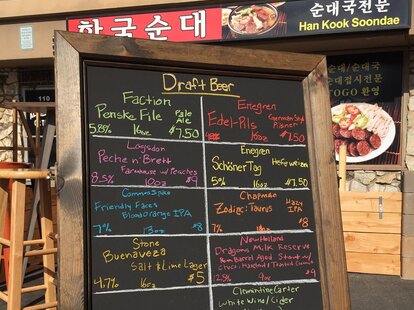 한국순대
순대국전문
Han Kook Soondae
순대국
TOGO 환영
110
Draft Beer
Faction
Penske File Pale Ale
5.85% 16oz $7.50
Logsdon
Peche n' Brett Farmhouse w/ Peaches
8.5% 10oz $9
Common Space
Friendly Faces
Blood Orange IPA
7% 13oz $8
Stone
Buenaveza
Salt & Lime Lager
4.7% 16oz $5
Enegren
Edel-Pils German Style Pilsner
16oz $7.50
Enegren
Schöner Tag Hefeweizen
5% 16oz $7.50
Chapman
Zodiac: Taurus Hazy IPA
7% 16oz $8
New Holland
Dragons Milk Reserve
Rum Barrel Aged Stout w/
Choc, Hazelnut & Toasted Coconut
12.5% 9oz $9
Clementine Carter
White Wine/Cider